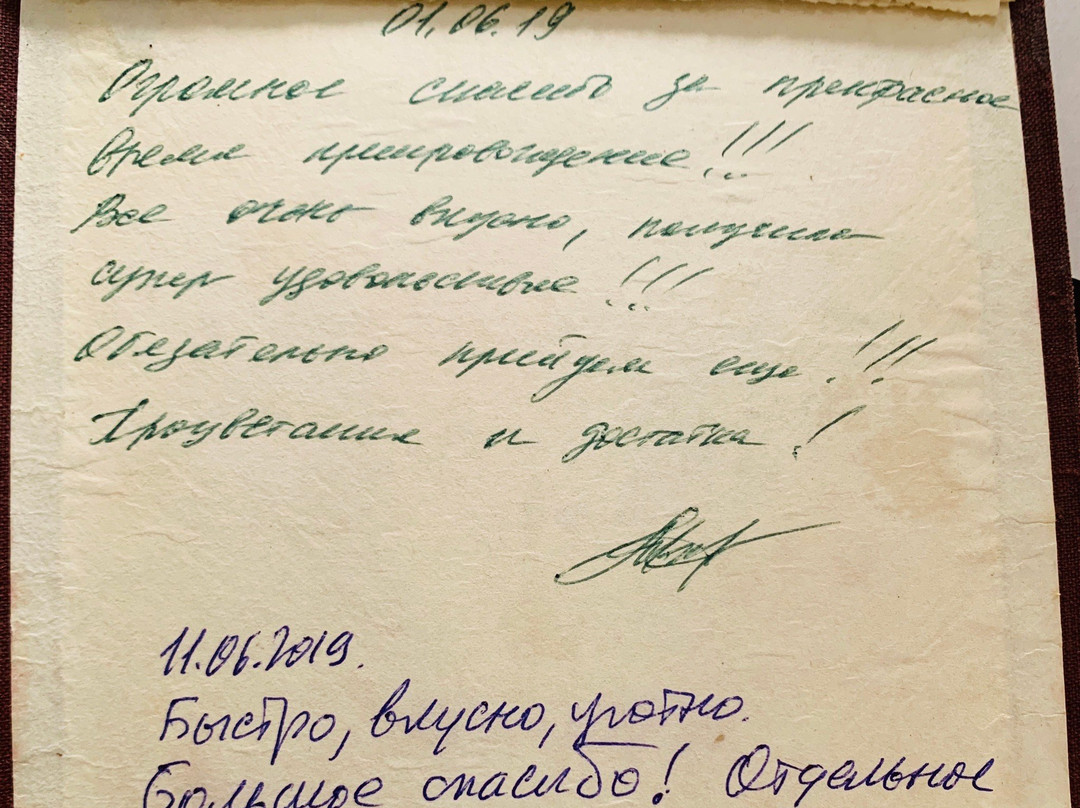 01.06.19
Огромное спасибо за прекрасное
время припровождение!!!
Все очень вкусно, получила
супер удовольствие!!!
Обязательно прийдем еще!!!
Процветания и достатка!
11.06.2019.
Быстро, вкусно, уютно.
Большое спасибо! Отдельное